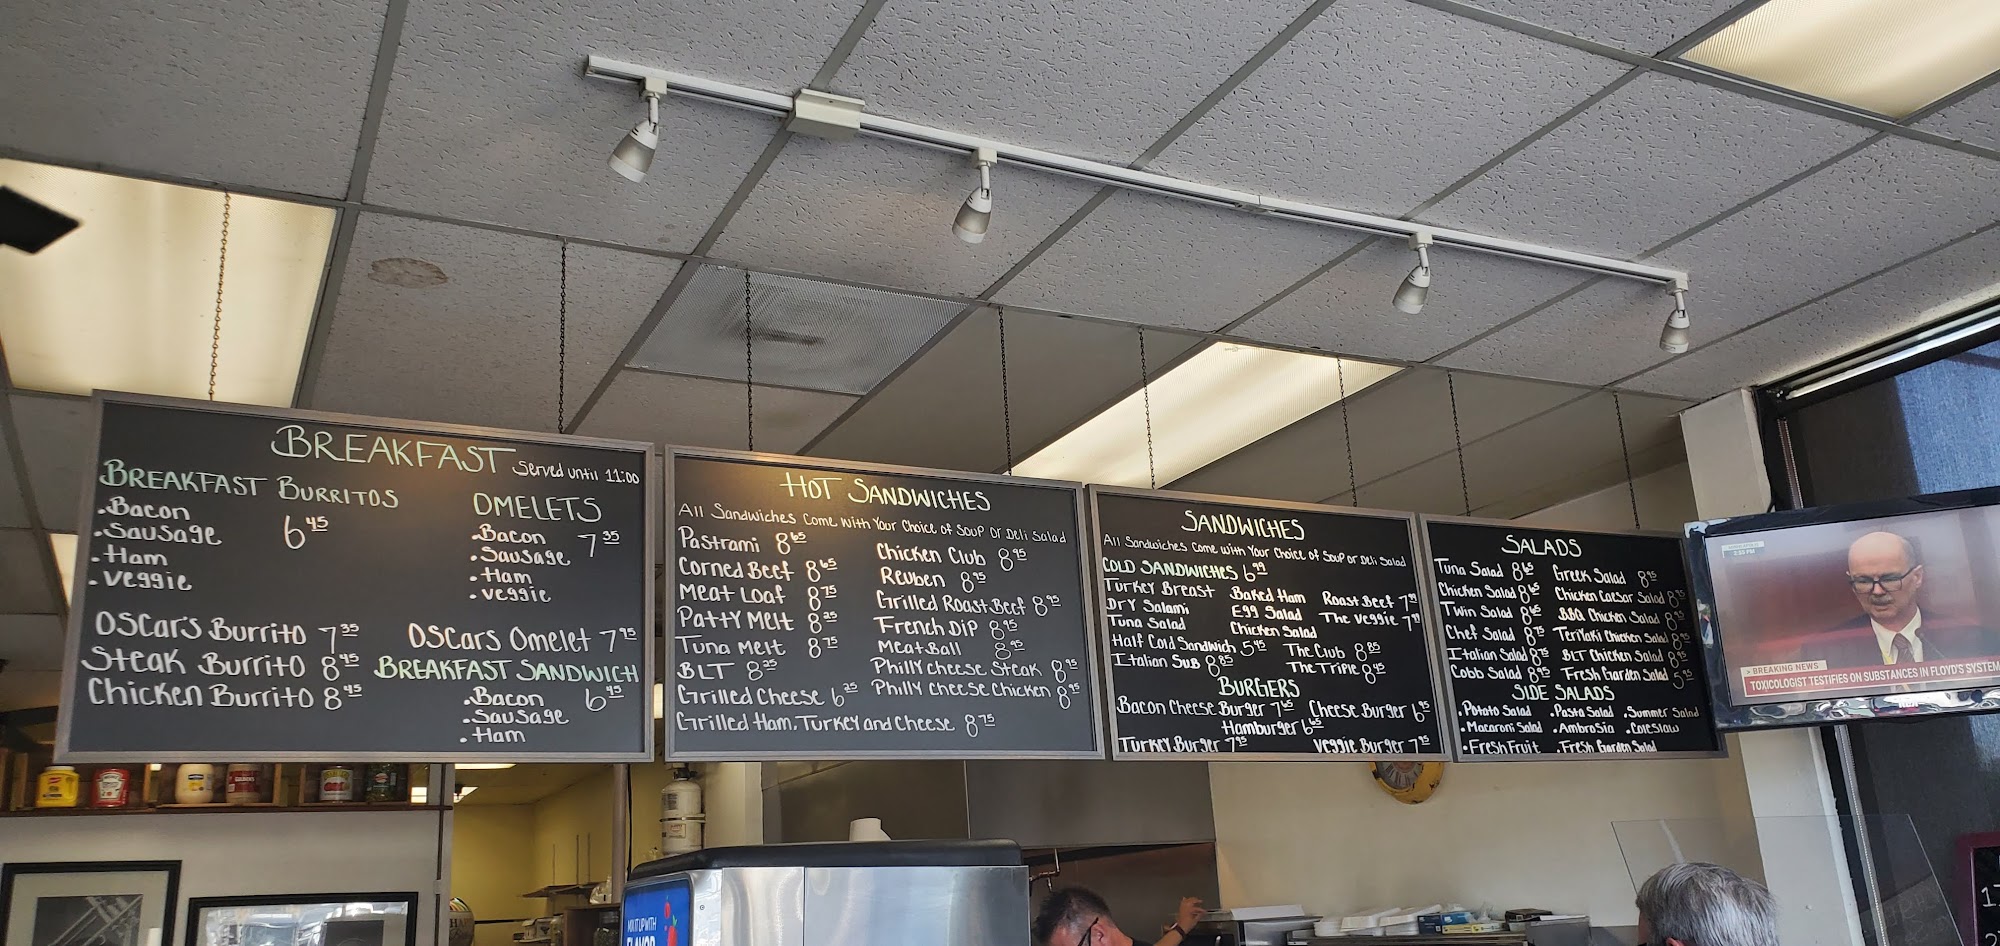 BREAKFAST Served until 11:00
BREAKFAST BURRITOS
.Bacon 6 45
.Sausage
.Ham
.veggie
OMELETS
.Bacon 7 35
.Sausage
.Ham
.veggie
Oscar's Burrito 7 35
Steak Burrito 8 45
Chicken Burrito 8 45
Oscars Omelet 7 95
BREAKFAST SANDWICH
.Bacon 6 45
.Sausage
.Ham
HOT SANDWICHES
All Sandwiches Come with Your Choice of Soup or Deli Salad
Pastrami 8 65
Corned Beef 8 65
Meat Loaf 8 75
Patty Melt 8 25
Tuna Melt 8 75
BLT 8 25
Grilled Cheese 6 25
Grilled Ham, Turkey and Cheese 8 75
Chicken Club 8 95
Reuben 8 95
Grilled Roast Beef 8 95
French Dip 8 95
Meat Ball 8 95
Philly Cheese Steak 8 95
Philly Cheese Chicken 8 95
SANDWICHES
All Sandwiches Come with Your Choice of Soup or Deli Salad
COLD SANDWICHES 6 99
Turkey Breast Baked Ham Roast Beef 7
Dry Salami Egg Salad The Veggie 7
Tuna Salad Chicken Salad
Half Cold Sandwich 5 45 The Club 8 85
Italian Sub 8 85 The Triple 8 45
BURGERS
Bacon Cheese Burger 7 65 Cheese Burger 6 95
Hamburger 6 65
Turkey Burger 7 95 Veggie Burger 7 95
SALADS
Tuna Salad 8 65 Greek Salad 8 95
Chicken Salad 8 65 Chicken Caesar Salad 8 95
Twin Salad 8 65 BBQ Chicken Salad 8 95
Chef Salad 8 75 Teriyaki Chicken Salad 8 95
Italian Salad 8 75 BLT Chicken Salad 8 95
Cobb Salad 8 95 Fresh Garden Salad 5 95
SIDE SALADS
.Potato Salad .Pasta Salad .Summer Salad
.Macaroni Salad .Ambrosia .Coleslaw
.Fresh Fruit .Fresh Garden Salad
BREAKING NEWS
TOXICOLOGIST TESTIFIES ON SUBSTANCES IN FLOYD'S SYSTEM
MIX IT UP WITH
FLAVOR